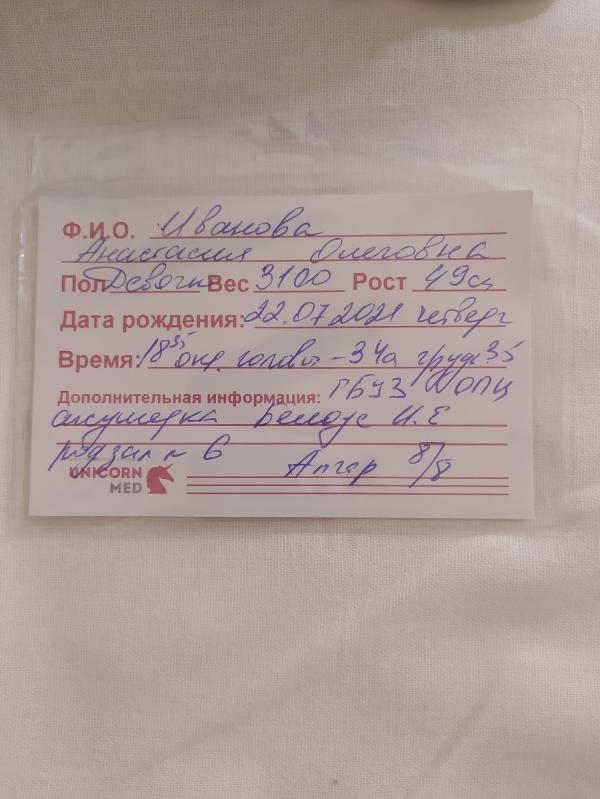 Ф.И.О. Иванова
Анастасия Олеговна
Пол Девочка Вес 3100 Рост 49см
Дата рождения: 22.07.2021 четверг
Время: 18 35 окр. головы - 34 груди 35
Дополнительная информация: ГБУЗ ДОПЦ
акушерка Белоус И.Е
родзал № 6
Апгар 8/8
UNICORN
MED